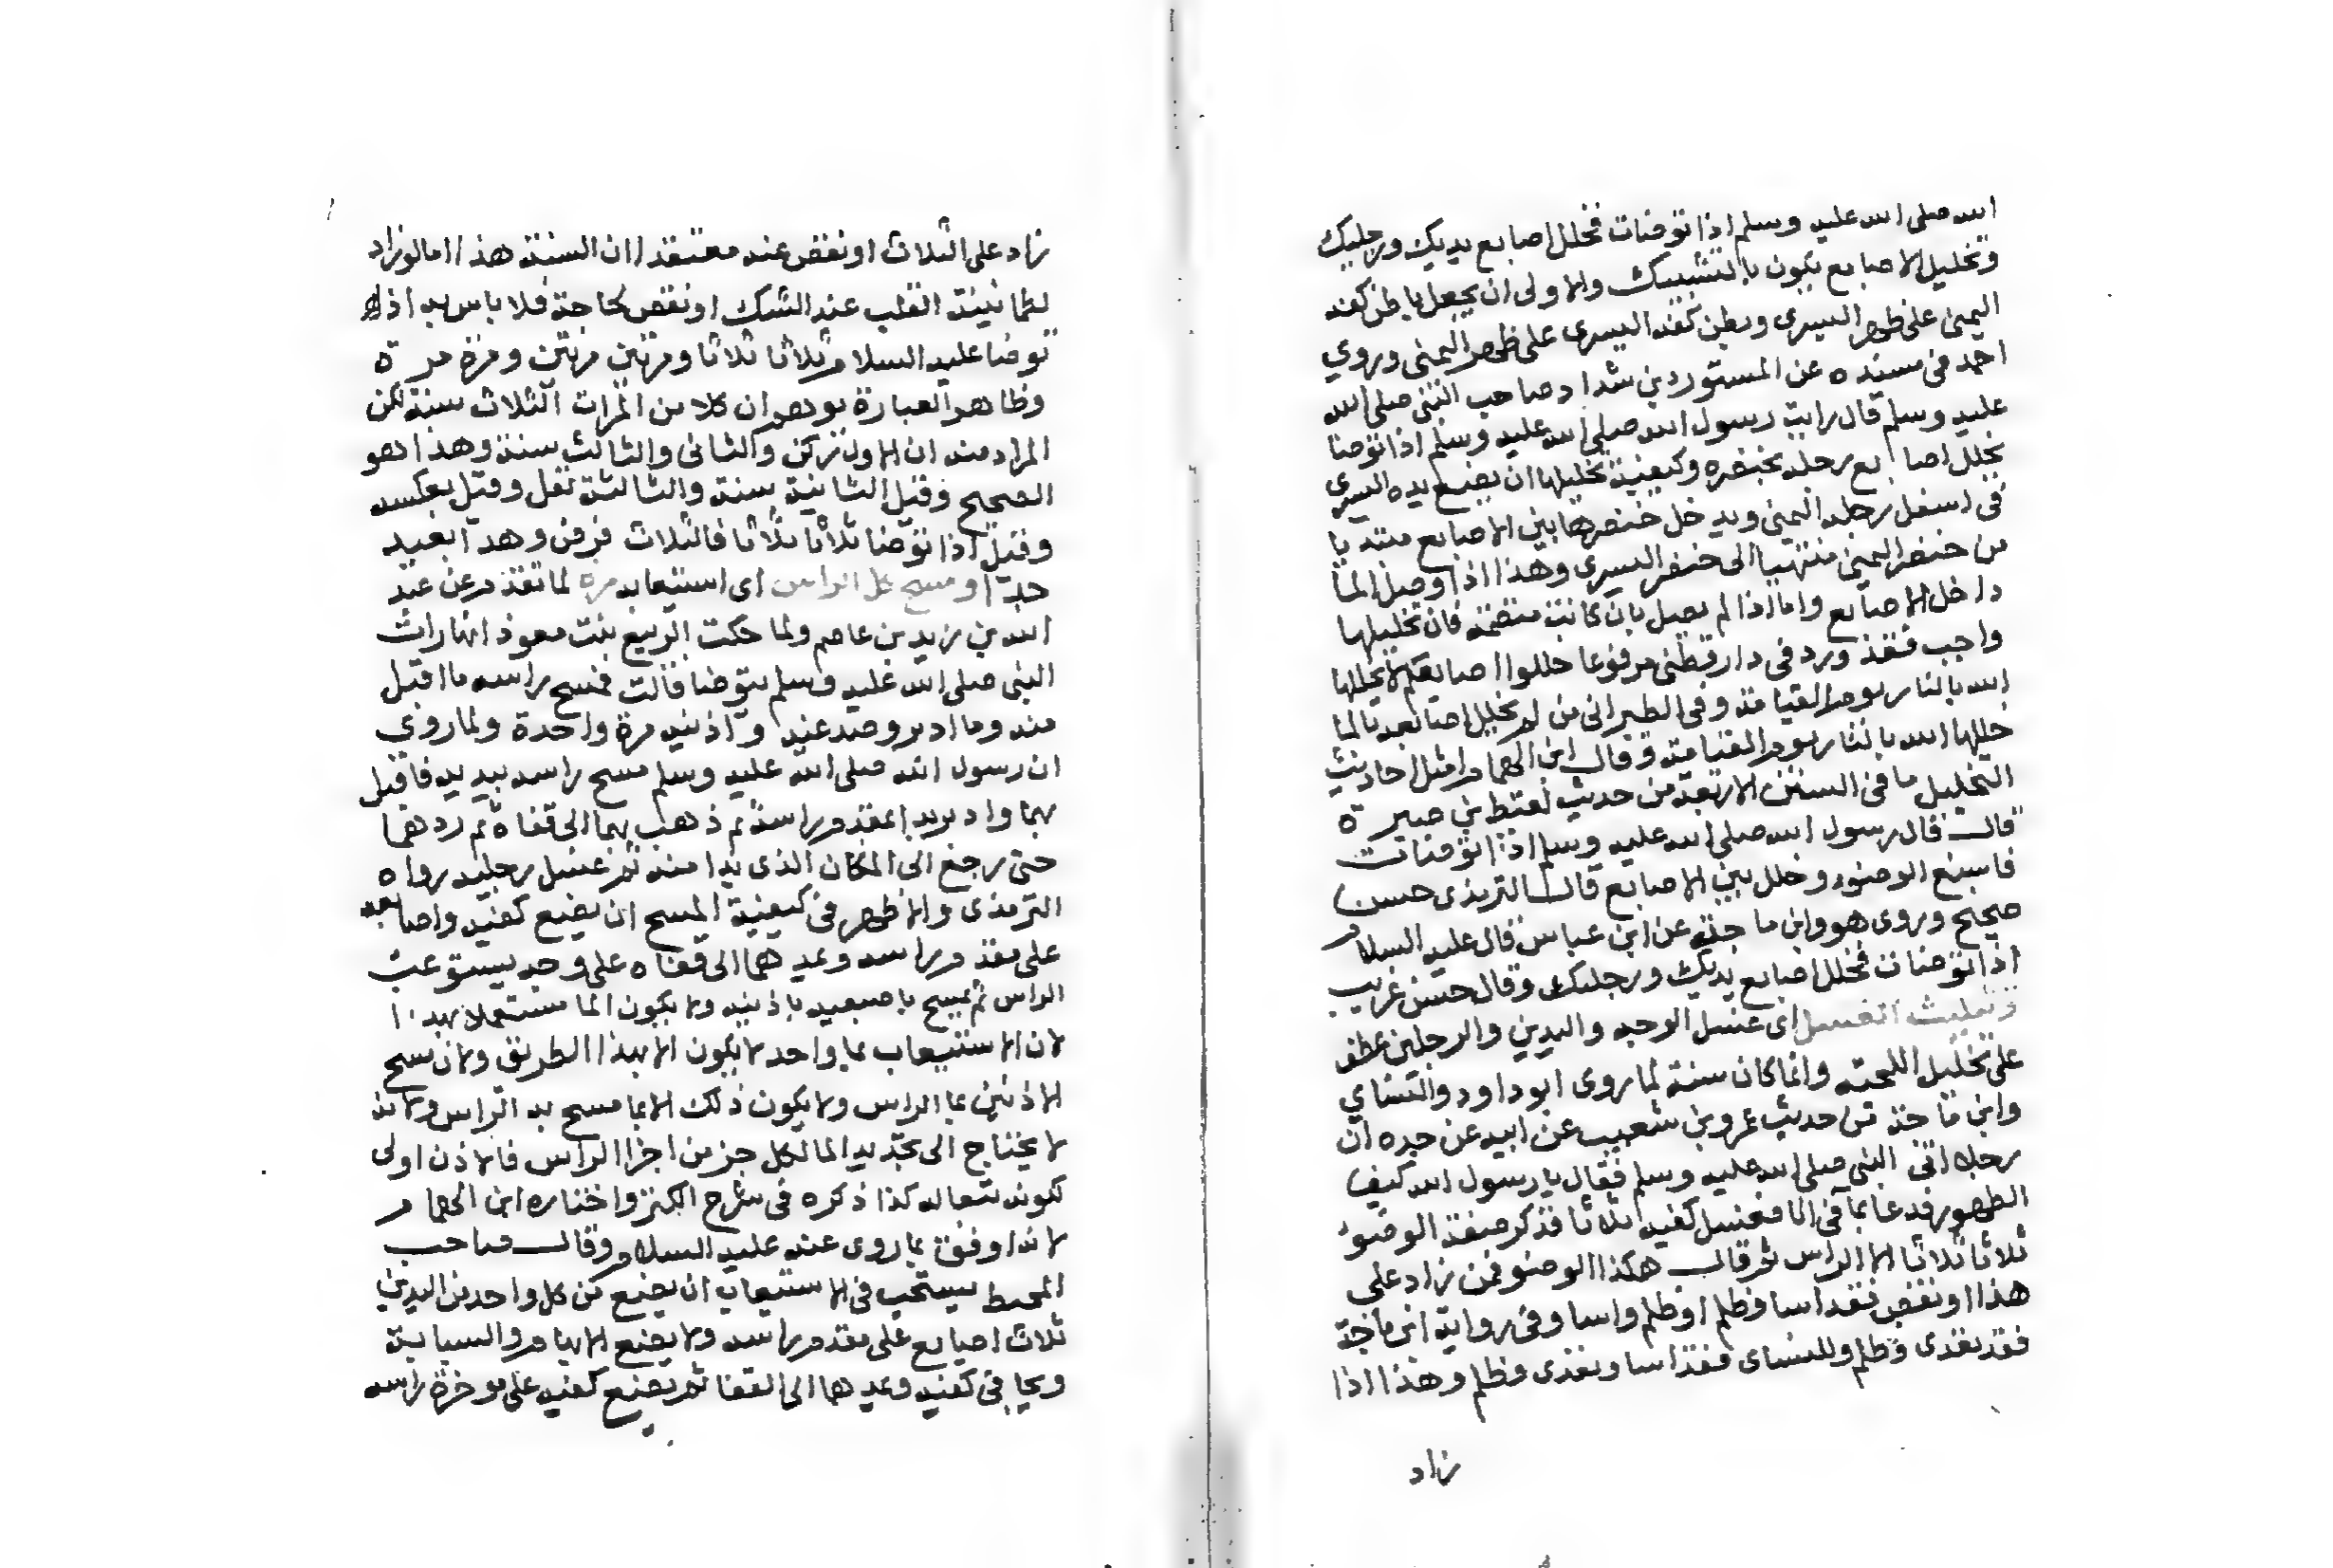 الله صلى الله عليه وسلم اذا توضات فخلل اصابع يديك ورجليك
وتخليل الاصابع يكون بالتشبيك والاولى ان يجعل باطن كفه
اليمنى على ظهر اليسرى وبطن كفه اليسرى على ظهر اليمنى وروي
احمد في مسنده عن المستورد بن شداد صاحب النبي صلى الله
عليه وسلم قال رايت رسول الله صلى الله عليه وسلم اذا توضا
تخلل اصابع رجله بخنصره وكيفية تخليلها ان يضع يده اليسرى
في اسفل رجله اليمنى ويدخل خنصرها بين الاصابع مبتديا
من خنصر اليمنى منتهيا الى خنصر اليسرى وهذا اذا وصل الما
داخل الاصابع واما اذا لم يصل بان كانت منضمة فان تخليلها
واجب فقد ورد في دارقطني مرفوعا خللوا اصابعكم لا يخللها
الله بالنار يوم القيامة وفي الطبراني من لم يخلل اصابعه بالما
خللها الله بالنار يوم القيامة وقال ابن الهمام امثل احاديث
التخليل ما في السنن الاربعة من حديث لقيط بن صبرة
قال قال رسول الله صلى الله عليه وسلم اذا توضات
فاسبغ الوضوء وخلل بين الاصابع قال الترمذي حسن
صحيح وروى هو وابن ماجة عن ابن عباس قال عليه السلام
اذا توضات فخلل اصابع يديك ورجليك وقال حسن غريب
وتثليث الغسل اي غسل الوجه واليدين والرجلين عطف
على تخليل اللحية وانما كان سنة لما روى ابو داود والنساي
وابن ماجة من حديث عمرو بن شعيب عن ابيه عن جده ان
رجلا اتى النبي صلى الله عليه وسلم فقال يا رسول الله كيف
الطهور فدعا بما في انا فغسل كفيه ثلاثا فذكر صفة الوضو
ثلاثا ثلاثا الا الراس ثم قال هكذا الوضو فمن زاد على
هذا او نقص فقد اسا وظلم او ظلم واسا وفي رواية ابن ماجة
فقد تعدى وظلم وللنساي فقد اسا وتعدى وظلم وهذا اذا
زاد
زاد على الثلاث او نقص عنه معتقدا ان السنة هذا اما لو زاد
لطمانينة القلب عند الشك او نقص لحاجة فلا باس به اذ
توضا عليه السلام ثلاثا ثلاثا ومرتين مرتين ومرة مرة
وظاهر العبارة يوهم ان كلا من المرات الثلاث سنة لكن
المراد منه ان الاولى ركن والثاني والثالث سنة وهذا هو
الصحيح وقيل الثانية سنة والثالثة نفل وقيل بعكسه
وقيل اذا توضا ثلاثا ثلاثا فالثلاث فرض وهذا بعيد
جدا ومسح كل الراس اي استيعابه مرة لما تقدم عن عبد
الله بن زيد بن عاصم ولما حكت الربيع بنت معوذ انها رات
النبي صلى الله عليه وسلم يتوضا قالت فمسح راسه ما اقبل
منه وما ادبر وصدغيه واذنيه مرة واحدة ولما روي
ان رسول الله صلى الله عليه وسلم مسح راسه بيديه فاقبل
بهما وادبر بدا بمقدم راسه ثم ذهب بهما الى قفاه ثم ردهما
حتى رجع الى المكان الذي بدا منه ثم غسل رجليه رواه
الترمذي والاظهر في كيفية المسح ان يضع كفيه واصابعه
على مقدم راسه ويمدهما الى قفاه على وجه يستوعب
الراس ثم يمسح باصبعيه باذنيه ولا يكون الما مستعملا بهذا
لان الاستيعاب بما واحد لا يكون الا بهذا الطريق ولان مسح
الاذنين بما الراس ولا يكون ذلك الا بما مسح به الراس ولانه
لا يحتاج الى تجديد الما لكل جز من اجزا الراس فالاذن اولى
لكونه تبعا له كذا ذكره في شرح الكنز واختاره ابن الهمام
لانه اوفق بما روى عنه عليه السلام وقال صاحب
المحيط يستحب في الاستيعاب ان يضع من كل واحد من اليدين
ثلاث اصابع على مقدم راسه ولا يضع الابهام والسبابة
ويجافي كفيه ويمدهما الى القفا ثم يضع كفيه على موخرة راسه